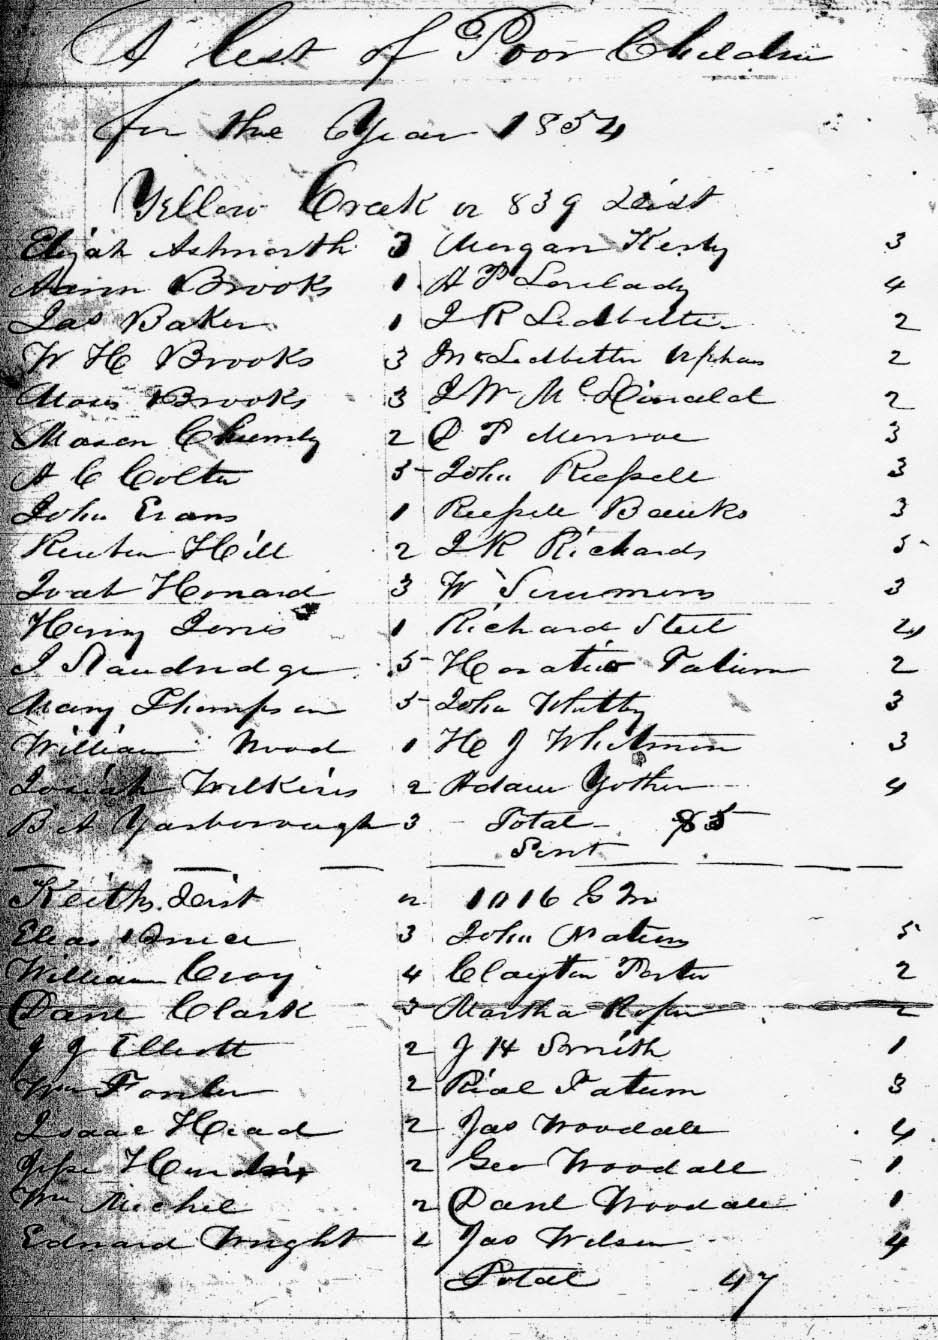 A List of Poor Children
for the Year 1854
Yellow Creek or 839 Dist
Elijah Ashworth 3 Morgan Kerby 3
Brooks 1 H P Lovelady 4
Jas Baker 1 J R Ledbetter 2
W H Brooks 3 Ledbetter Orphans 2
Brooks 3 J W McDonald 2
Mason Chumly 2 D P Monroe 3
A C Colter 5 John Russell 3
John Evans 1 Russell Banks 3
Reuben Hill 2 J R Richards 5
Howard 3 W Simmons 3
Henry Jones 1 Richard Steel 4
J Standridge 5 Horatio Tatum 2
Mary Thompson 5 John Whitby 3
William Wood 1 H J Whitmon 3
Josiah Wilkins 2 Adam Yother 4
B A Yarborough 3 Total 85
Sent
Keiths Dist or 1016 G M
Elias 3 John 5
William Cray 4 Clayton Porter 2
Danl Clark 3 Martha Roper 2
J J Elliott 2 J H Smith 1
Wm Fowler 2 Rial Tatum 3
Isaac Head 2 Jas Woodall 4
Jesse 2 Geo Woodall 1
Wm Michel 2 Danl Woodall 1
Edward Wright 2 Jas Wilson 4
Total 47